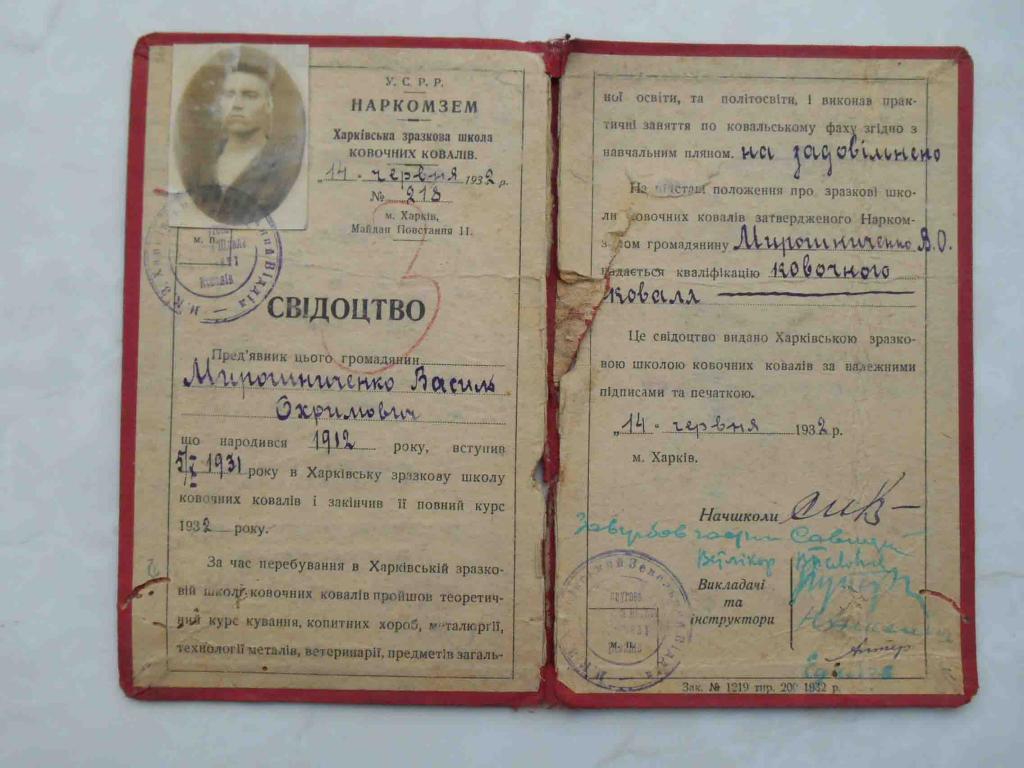 У. С. Р. Р.
НАРКОМЗЕМ
Харківська зразкова школа
КОВОЧНИХ КОВАЛІВ.
„14 - червня 1932 р.
№ 213
м. Харків,
Майдан Повстання 11.
м. п.
СВІДОЦТВО
Пред'явник цього громадянин
Мирошниченко Василь
Охримович
що народився 1912 року, вступив
5/X 1931 року в Харківську зразкову школу
ковочних ковалів і закінчив її повний курс
1932 року.
За час перебування в Харківській зразко-
вій школі ковочних ковалів пройшов теоретич-
ний курс кування, копитних хороб, металюргії,
технології металів, ветеринарії, предметів загаль-
ної освіти, та політосвіти, і виконав прак-
тичні заняття по ковальському фаху згідно з
навчальним пляном. на задовільнено
На підставі положення про зразкові шко-
ли ковочних ковалів затвердженого Нарком-
земом громадянину Мирошниченко В.О.
надається кваліфікацію ковочного
коваля
Це свідоцтво видано Харківською зразко-
вою школою ковочних ковалів за належними
підписами та печаткою.
„14 - червня 1932 р.
м. Харків.
Начшколи
Викладачі
та
інструктори
м. п.
Зак. № 1219 тир. 200 1932 р.